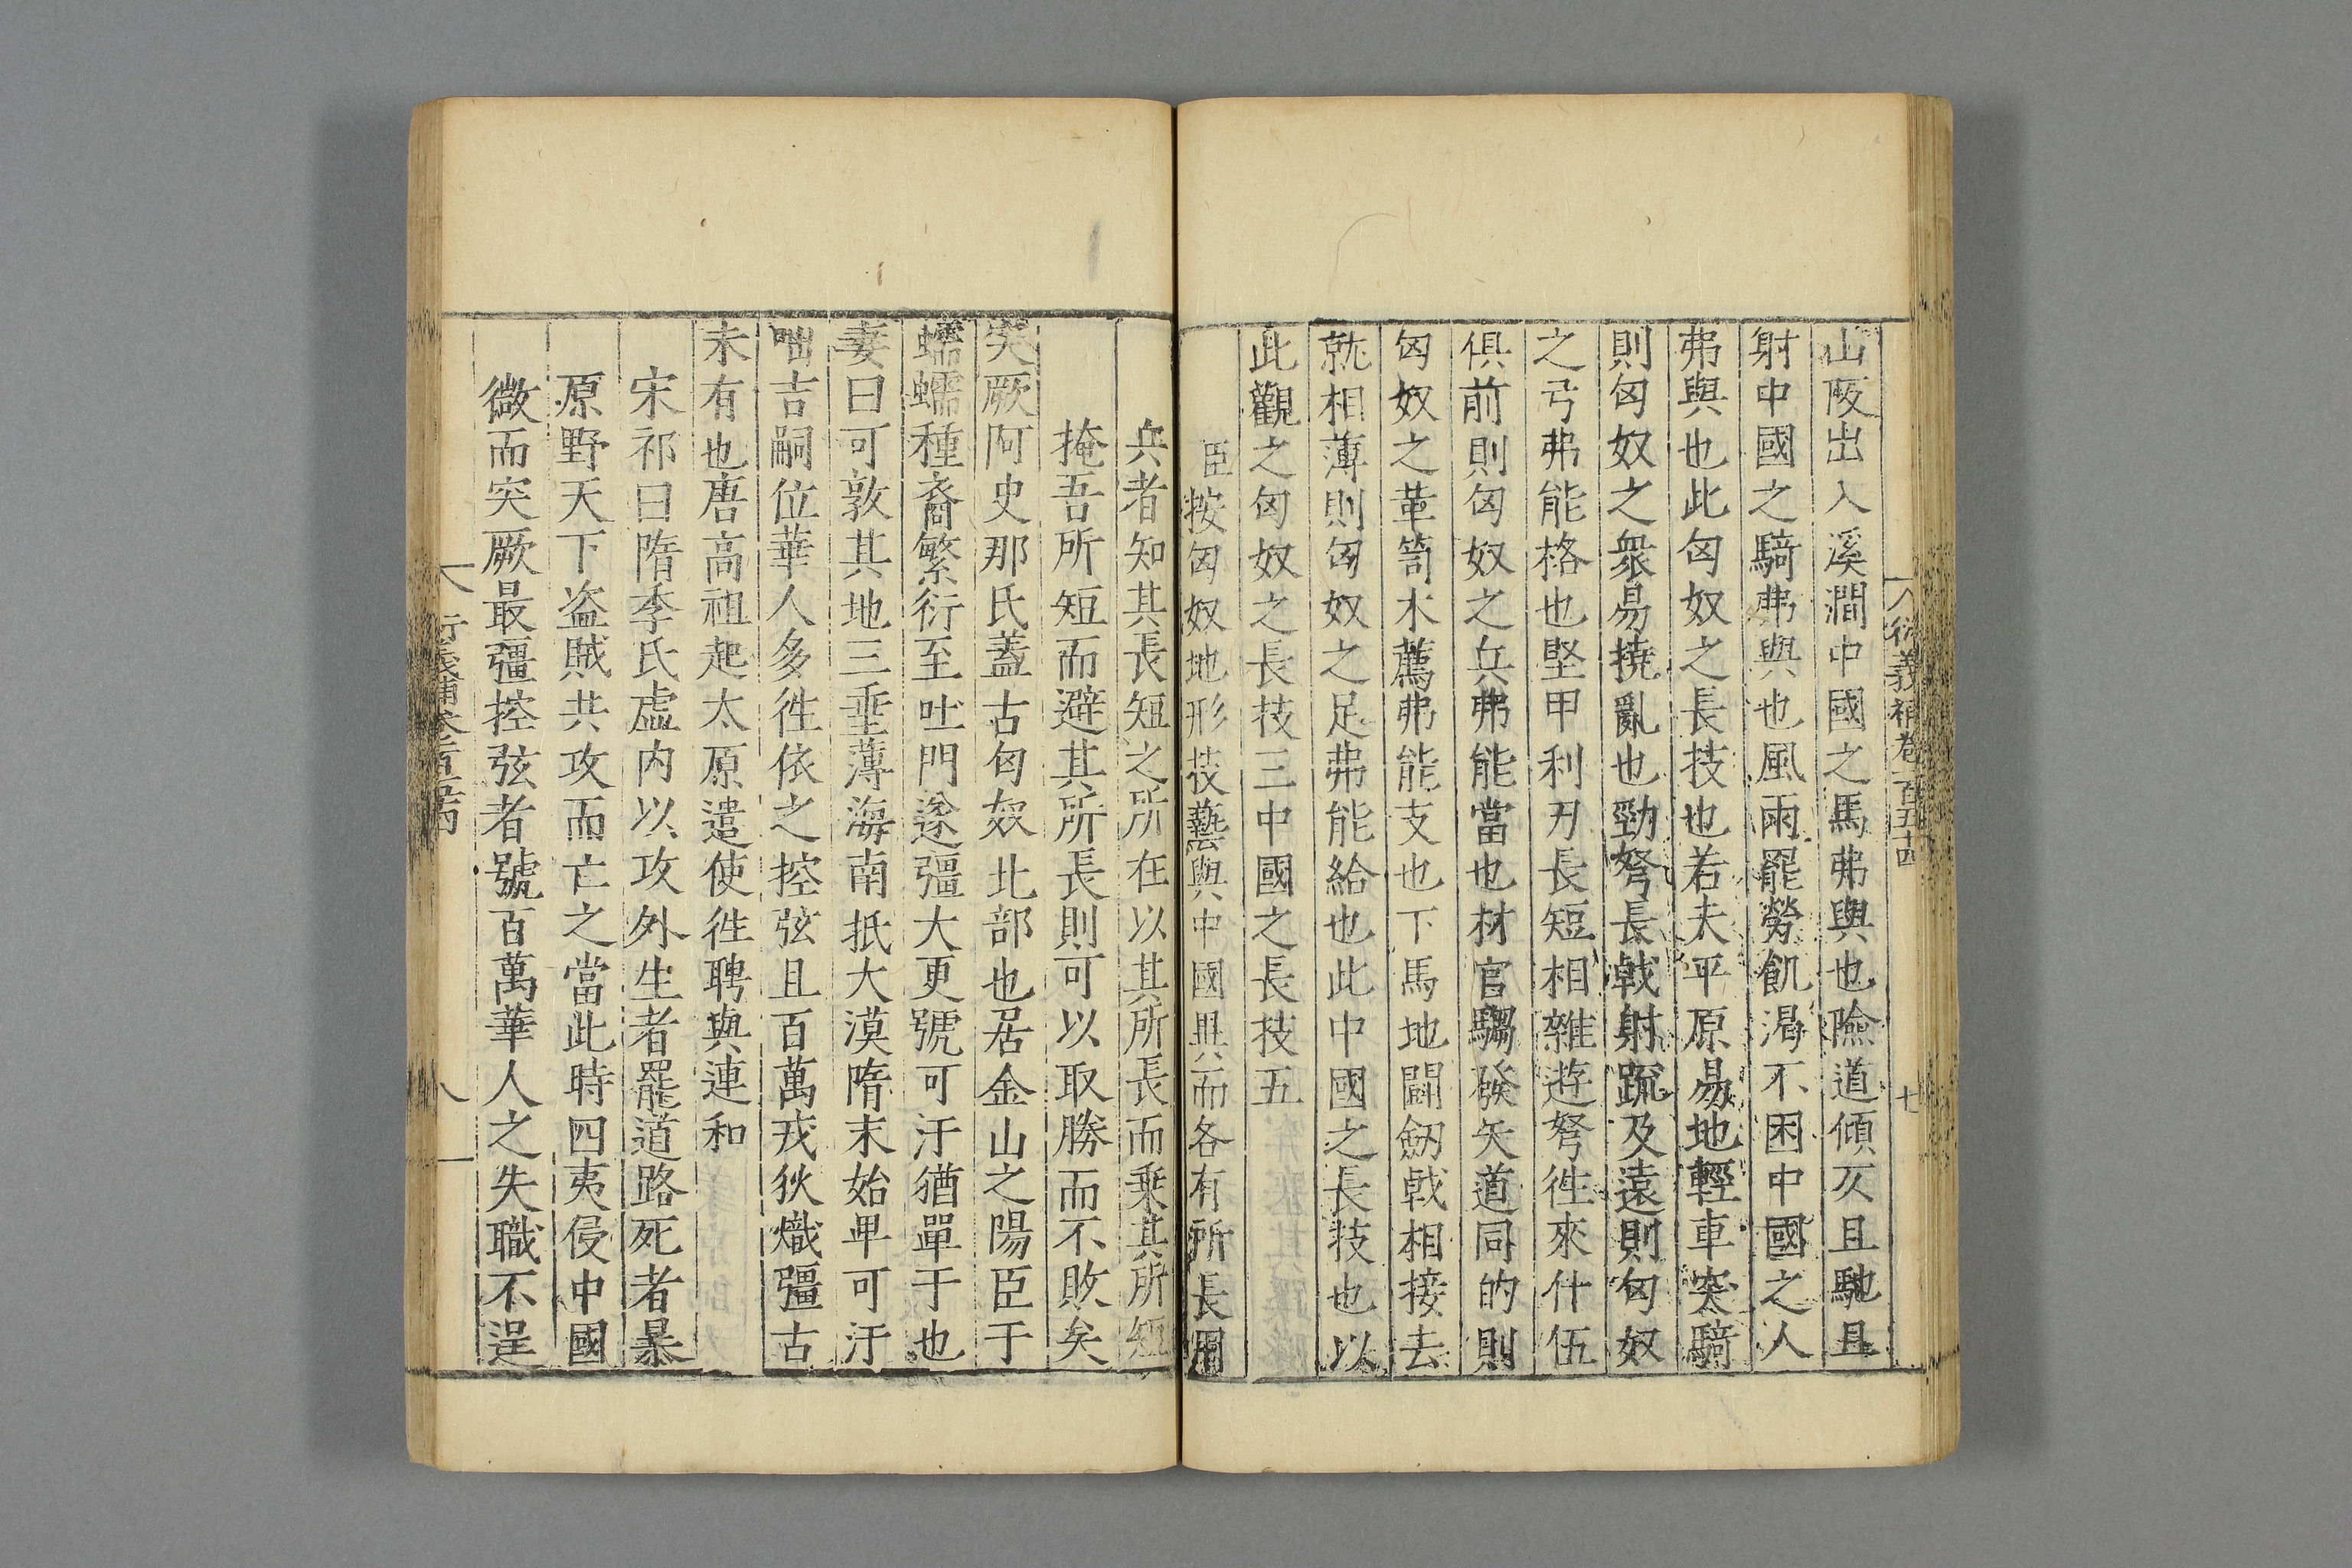 衍義補卷一百五十四 七
山阪出入溪澗中國之馬弗與也險道傾仄且馳且
射中國之騎弗與也風雨罷勞飢渴不困中國之人
弗與也此匈奴之長技也若夫平原易地輕車突騎
則匈奴之衆易撓亂也勁弩長戟射疏及遠則匈奴
之弓弗能格也堅甲利刃長短相雜遊弩徃來什伍
俱前則匈奴之兵弗能當也材官騶發矢道同的則
匈奴之革笥木薦弗能支也下馬地鬬劒戟相接去
就相薄則匈奴之足弗能給也此中國之長技也以
此觀之匈奴之長技三中國之長技五
臣按匈奴地形技藝與中國異而各有所長用
兵者知其長短之所在以其所長而乗其所短
掩吾所短而避其所長則可以取勝而不敗矣
突厥阿史那氏蓋古匈奴北部也居金山之陽臣于
蠕蠕種裔繁衍至吐門遂彊大更號可汗猶單于也
妻曰可敦其地三垂薄海南抵大漠隋末始畢可汗
咄吉嗣位華人多徃依之控弦且百萬戎狄熾彊古
未有也唐高祖起太原遣使徃聘與連和
宋祁曰隋季氏虛内以攻外生者罷道路死者暴
原野天下盜賊共攻而亡之當此時四夷侵中國
微而突厥最彊控弦者號百萬華人之失職不逞